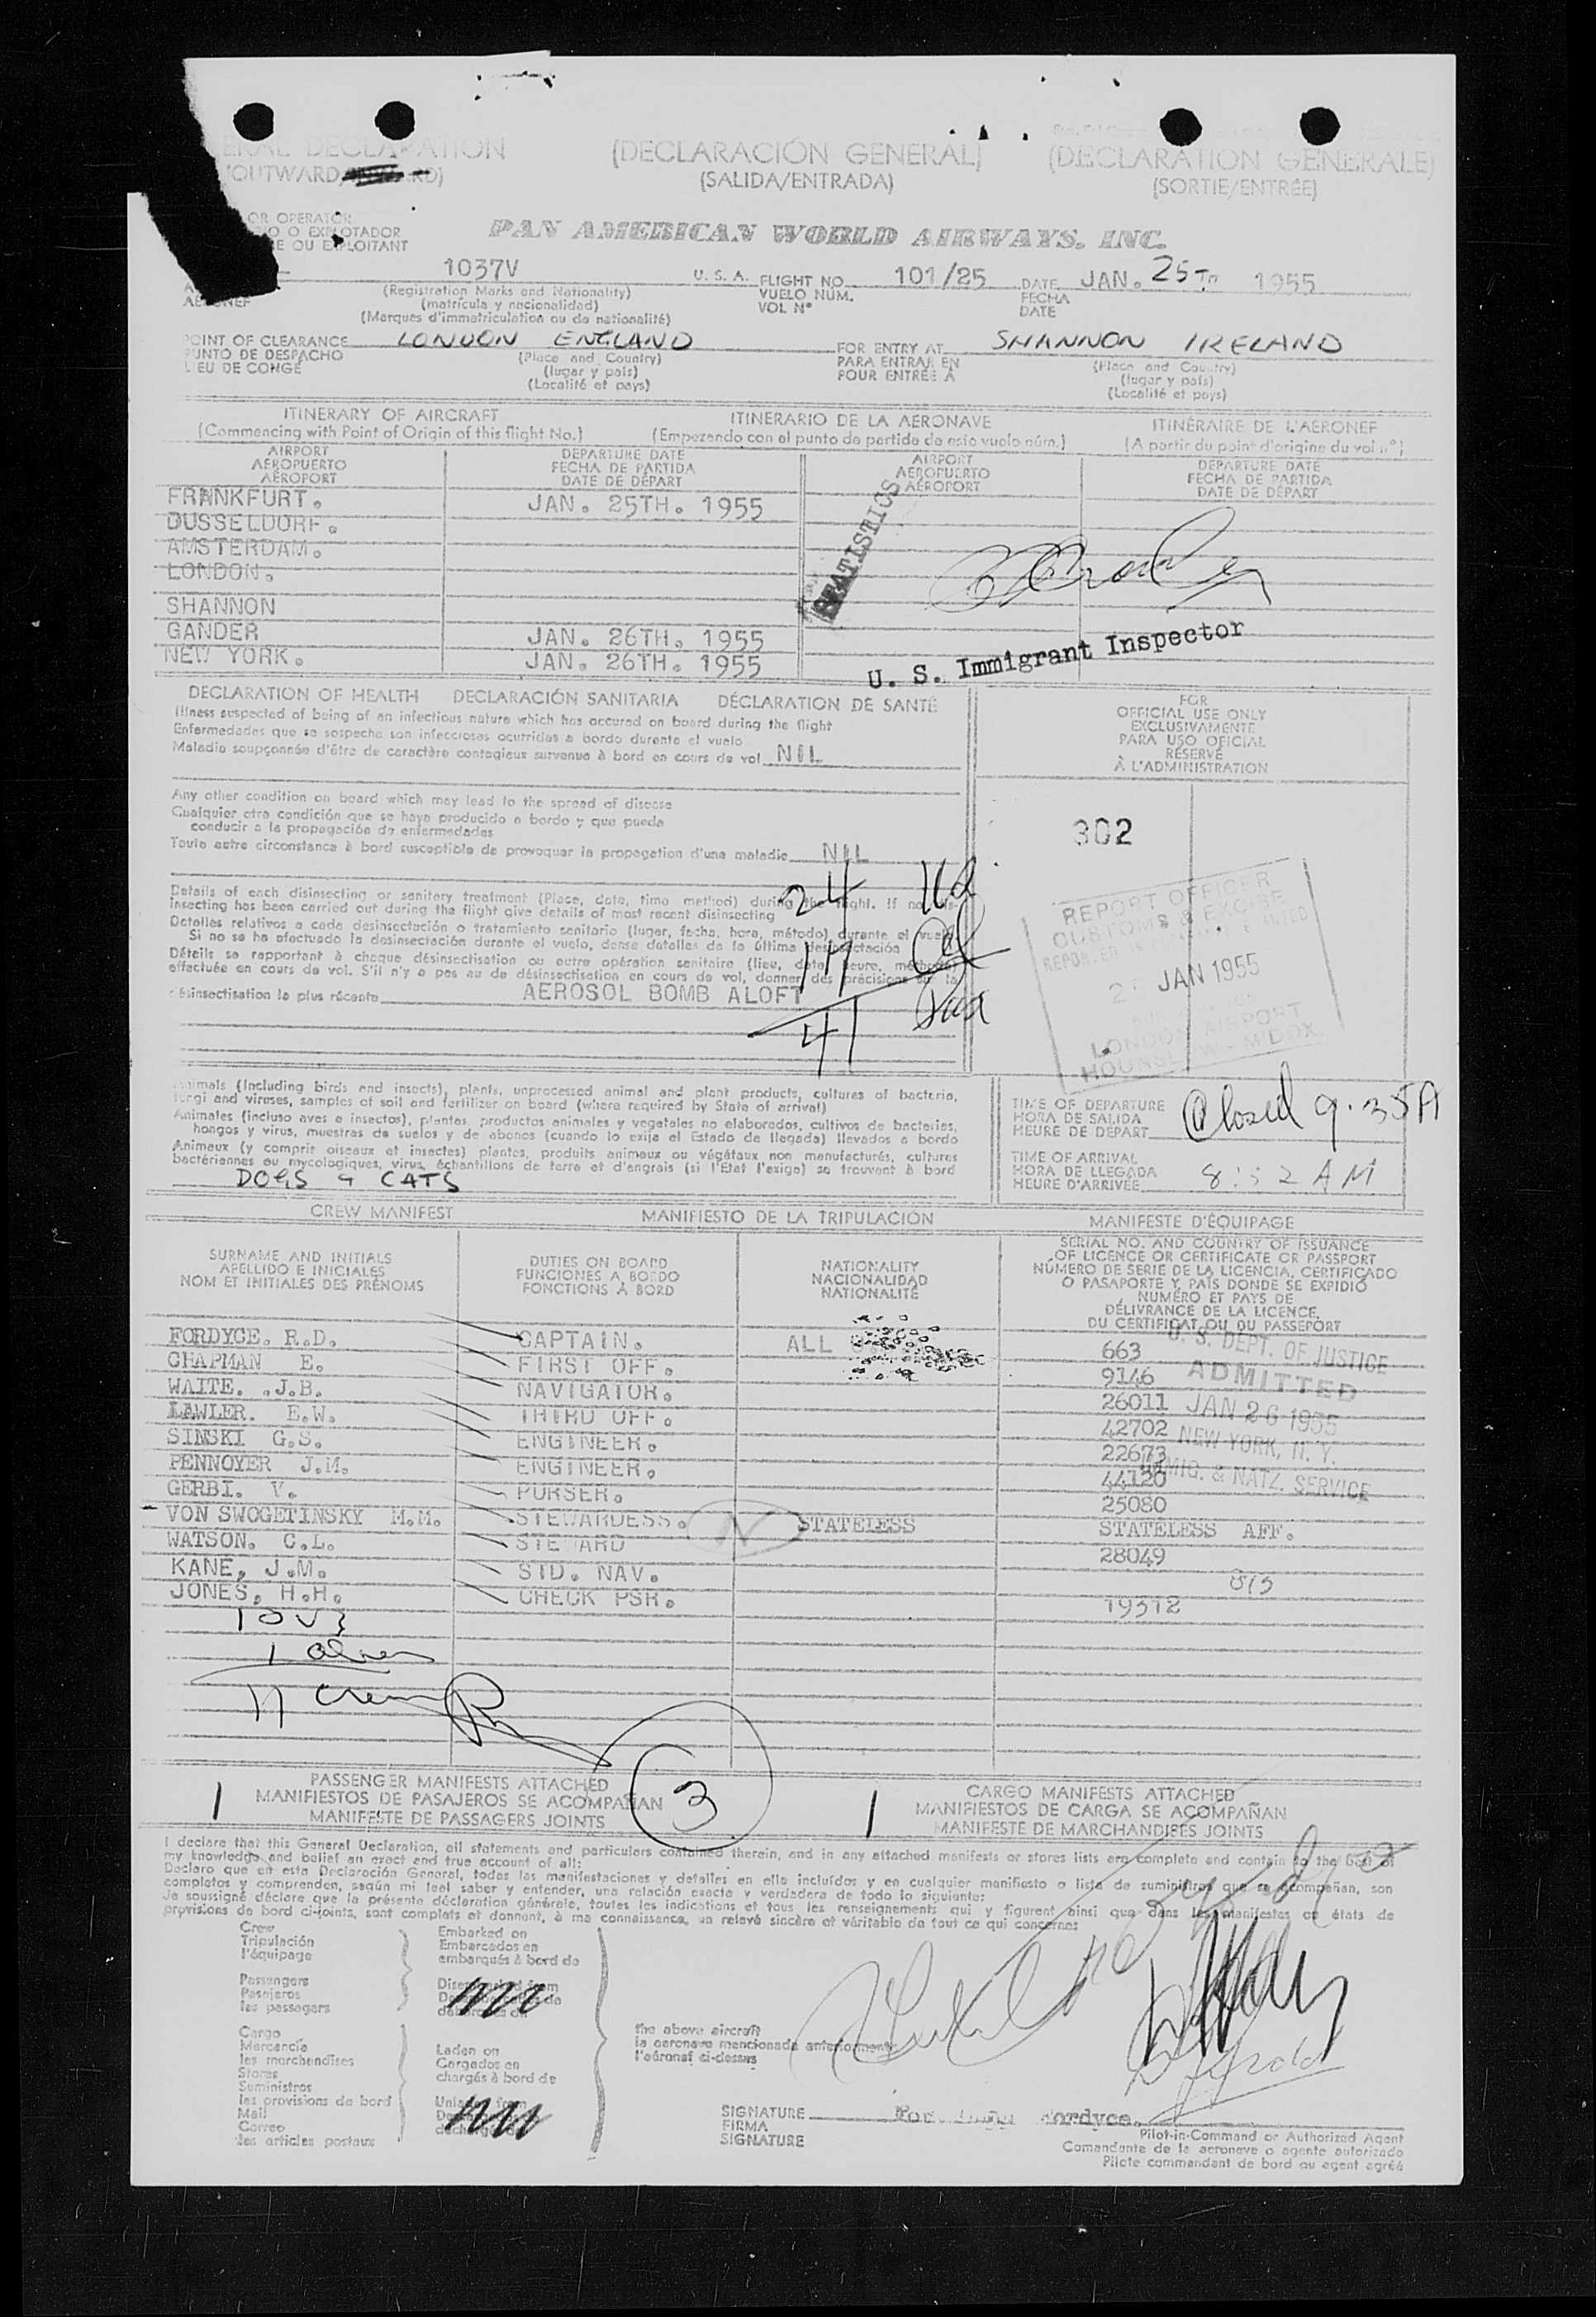 ERAL DECLARATION (DECLARACIÓN GENERAL) (DECLARATION GENERALE)
(OUTWARD/ RD) (SALIDA/ENTRADA) (SORTIE/ENTRÉE)
OR OPERATOR
IO O EXPLOTADOR
RE OU EXPLOITANT
PAN AMERICAN WORLD AIRWAYS, INC.
1037V U. S. A. FLIGHT NO. 101/25 DATE JAN. 25TH 1955
(Registration Marks and Nationality) VUELO NUM. FECHA
(matrícula y nacionalidad) VOL Nº DATE
(Marques d'immatriculation ou de nationalité)
POINT OF CLEARANCE LONDON ENGLAND FOR ENTRY AT SHANNON IRELAND
PUNTO DE DESPACHO (Place and Country) PARA ENTRAR EN (Place and Country)
LIEU DE CONGÉ (lugar y país) POUR ENTRÉE À (lugar y país)
(Localité et pays) (Localité et pays)
ITINERARY OF AIRCRAFT ITINERARIO DE LA AERONAVE ITINÉRAIRE DE L'AÉRONEF
(Commencing with Point of Origin of this flight No.) (Empezando con el punto de partida de este vuelo núm.) (A partir du point d'origine du vol nº)
AIRPORT DEPARTURE DATE AIRPORT DEPARTURE DATE
AEROPUERTO FECHA DE PARTIDA AEROPUERTO FECHA DE PARTIDA
AÉROPORT DATE DE DÉPART AÉROPORT DATE DE DÉPART
FRANKFURT. JAN. 25TH. 1955
DUSSELDORF.
AMSTERDAM.
LONDON.
STATISTICS
SHANNON
GANDER JAN. 26TH. 1955
NEW YORK. JAN. 26TH. 1955
U. S. Immigrant Inspector
DECLARATION OF HEALTH DECLARACIÓN SANITARIA DÉCLARATION DE SANTÉ
Illness suspected of being of an infectious nature which has occured on board during the flight
Enfermedades que se sospeche son infecciosas ocurridas a bordo durante el vuelo
Maladie soupçonnée d'être de caractère contagieux survenue à bord en cours de vol NIL
FOR
OFFICIAL USE ONLY
EXCLUSIVAMENTE
PARA USO OFICIAL
RÉSERVÉ
À L'ADMINISTRATION
Any other condition on board which may lead to the spread of disease
Cualquier otra condición que se haya producido a bordo y que pueda
conducir a la propagación de enfermedades
Toute autre circonstance à bord susceptible de provoquer la propagation d'une maladie NIL
302
Details of each disinsecting or sanitary treatment (Place, date, time method) during the flight. If no dis-
insecting has been carried out during the flight give details of most recent disinsecting
Detalles relativos a cada desinsectación o tratamiento sanitario (lugar, fecha, hora, método) durante el vuelo
Si no se ha efectuado la desinsectación durante el vuelo, dense detalles de la última desinsectación
Détails se rapportant à chaque désinsectisation ou autre opération sanitaire (lieu, date, heure, méthode)
effectuée en cours de vol. S'il n'y a pas eu de désinsectisation en cours de vol, donner des précisions sur la
désinsectisation la plus récente AEROSOL BOMB ALOFT
24
17
41
REPORT OFFICER
CUSTOMS & EXCISE
JAN 1955
LONDON AIRPORT
HOUNSLOW - MIDDX.
Animals (Including birds and insects), plants, unprocessed animal and plant products, cultures of bacteria,
fungi and viruses, samples of soil and fertilizer on board (where required by State of arrival)
Animales (incluso aves e insectos), plantas, productos animales y vegetales no elaborados, cultivos de bacterias,
hongos y virus, muestras de suelos y de abonos (cuando lo exija el Estado de llegada) llevados a bordo
Animaux (y compris oiseaux et insectes) plantes, produits animaux ou végétaux non manufacturés, cultures
bactériennes ou mycologiques, virus, échantillons de terre et d'engrais (si l'Etat l'exige) se trouvent à bord
DOGS & CATS
TIME OF DEPARTURE Closed 9.35A
HORA DE SALIDA
HEURE DE DÉPART
TIME OF ARRIVAL
HORA DE LLEGADA
HEURE D'ARRIVÉE 8:52 AM
CREW MANIFEST MANIFIESTO DE LA TRIPULACIÓN MANIFESTE D'ÉQUIPAGE
SURNAME AND INITIALS
APELLIDO E INICIALES
NOM ET INITIALES DES PRÉNOMS
DUTIES ON BOARD
FUNCIONES A BORDO
FONCTIONS À BORD
NATIONALITY
NACIONALIDAD
NATIONALITÉ
SERIAL NO. AND COUNTRY OF ISSUANCE
OF LICENCE OR CERTIFICATE OR PASSPORT
NÚMERO DE SERIE DE LA LICENCIA, CERTIFICADO
O PASAPORTE Y PAÍS DONDE SE EXPIDIÓ
NUMÉRO ET PAYS DE
DÉLIVRANCE DE LA LICENCE,
DU CERTIFICAT OU DU PASSEPORT
FORDYCE. R.D. CAPTAIN. ALL 663
CHAPMAN E. FIRST OFF. 9146
WAITE. .J.B. NAVIGATOR. 26011
LAWLER. E.W. THIRD OFF. 42702
SINSKI G.S. ENGINEER. 22673
PENNOYER J.M. ENGINEER. 44120
GERBI. V. PURSER. 25080
VON SWOGETINSKY M.M. STEWARDESS. STATELESS STATELESS AFF.
WATSON. C.L. STEWARD 28049
KANE, J.M. STD. NAV. 815
JONES, H.H. CHECK PSR. 19312
U. S. DEPT. OF JUSTICE
ADMITTED
JAN 26 1955
NEW YORK, N. Y.
IMMIG. & NATZ. SERVICE
11 crew
1 PASSENGER MANIFESTS ATTACHED
MANIFIESTOS DE PASAJEROS SE ACOMPAÑAN
MANIFESTE DE PASSAGERS JOINTS
3
1 CARGO MANIFESTS ATTACHED
MANIFIESTOS DE CARGA SE ACOMPAÑAN
MANIFESTE DE MARCHANDISES JOINTS
I declare that this General Declaration, all statements and particulars contained therein, and in any attached manifests or stores lists are complete and contain to the best of
my knowledge and belief an exact and true account of all:
Declaro que en esta Declaración General, todas las manifestaciones y detalles en ella incluídos y en cualquier manifiesto o lista de suministros que se acompañan, son
completos y comprenden, según mi leal saber y entender, una relación exacta y verdadera de todo lo siguiente:
Je soussigné déclare que la présente déclaration générale, toutes les indications et tous les renseignements qui y figurent ainsi que dans les manifestes et états de
provisions de bord ci-joints, sont complets et donnent, à ma connaissance, un relevé sincère et véritable de tout ce qui concerne:
Crew
Tripulación
l'équipage
Passengers
Pasajeros
les passagers
Embarked on
Embarcados en
embarqués à bord de
Cargo
Mercancía
les marchandises
Stores
Suministros
les provisions de bord
Mail
Correo
les articles postaux
Laden on
Cargados en
chargés à bord de
the above aircraft
la aeronave mencionada anteriormente
l'aéronef ci-dessus
SIGNATURE For Fordyce.
FIRMA
SIGNATURE
Pilot-in-Command or Authorized Agent
Comandante de la aeronave o agente autorizado
Pilote commandant de bord ou agent agréé